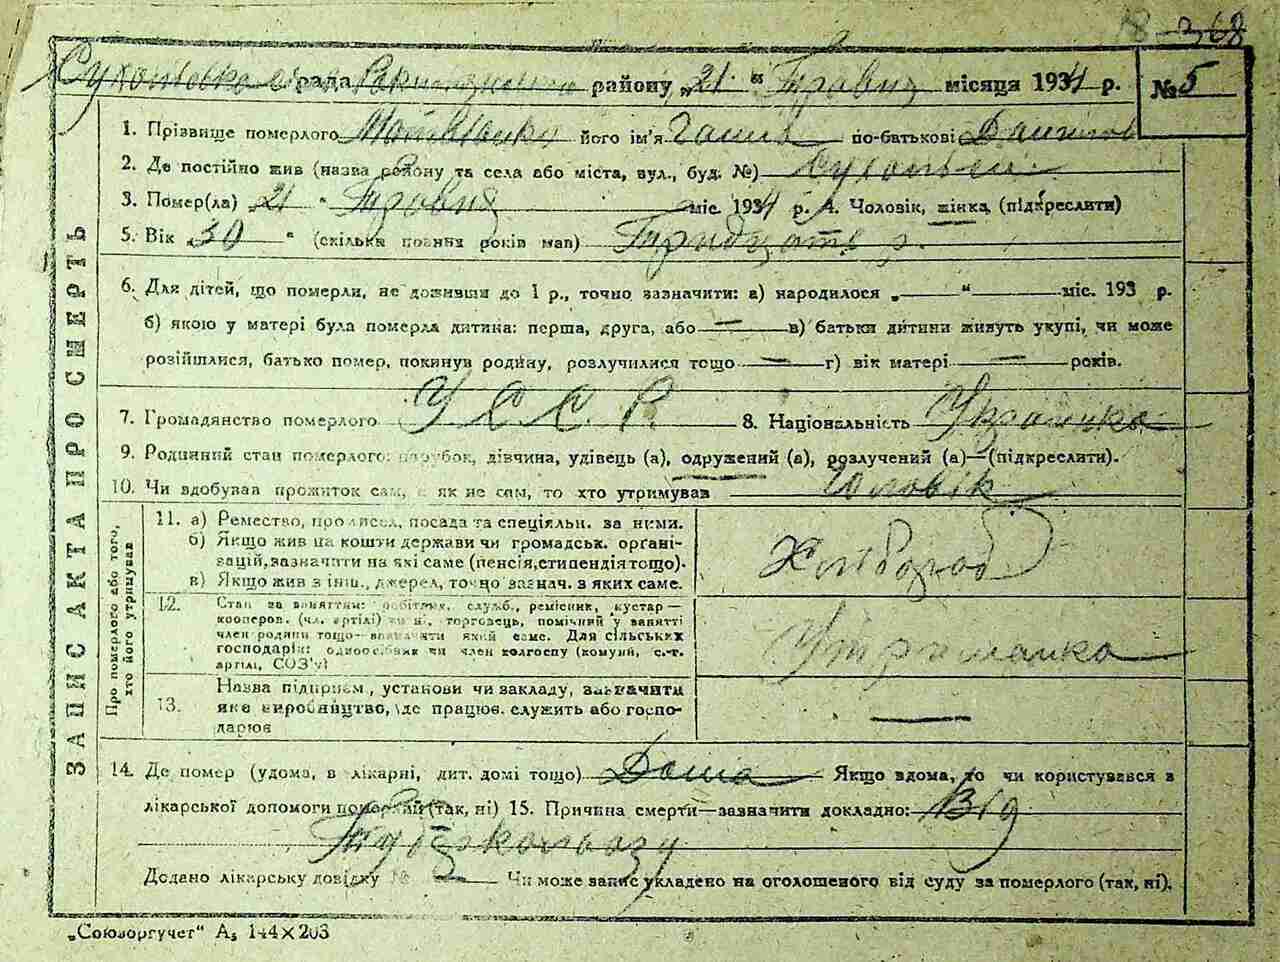 368
рада району „21“ Травня місяця 1934 р. №5
ЗАПИС АКТА ПРО СМЕРТЬ
1. Прізвище померлого його ім'я по-батькові
2. Де постійно жив (назва району та села або міста, вул., буд. №)
3. Помер(ла) 21 " Травня міс. 1934 р. 4. Чоловік, жінка (підкреслити)
5. Вік „30 " (скільки повних років мав) Тридцать р.
6. Для дітей, що померли, не доживши до 1 р., точно зазначити: а) народилося „ — " — міс. 193 р.
б) якою у матері була померла дитина: перша, друга, або — в) батьки дитини живуть укупі, чи може
розійшлися, батько помер, покинув родину, розлучилися тощо — г) вік матері — років.
7. Громадянство померлого УССР 8. Національність Українка
9. Родинний стан померлого: парубок, дівчина, удівець (а), одружений (а), розлучений (а)—(підкреслити).
10. Чи вдобував прожиток сам, а як не сам, то хто утримував Чоловік
Про померлого або того, хто його утримував
11. а) Ремество, промисел, посада та спеціяльн. за ними.
б) Якщо жив на кошти держави чи громадськ. органі-
зацій, зазначити на які саме (пенсія, стипендія тощо).
в) Якщо жив з інш., джерел, точно зазнач. з яких саме.
Хлібороб
12. Стан за заняттям: робітник, служб., ремісник, кустар—
кооперов. (чл. артілі) чи н., торговець, помічний у занятті
член родини тощо—визначати який саме. Для сільських
господарів: одноосібник чи член колгоспу (комуни, с.-г.
артілі, СОЗ'у)
Утриманка
13. Назва підприєм., установи чи закладу, зазначити
яке виробництво, де працює, служить або госпо-
дарює
—
14. Де помер (удома, в лікарні, дит. домі тощо) Дома Якщо вдома, то чи користувався з
лікарської допомоги померлий (так, ні) 15. Причина смерти—зазначити докладно: Від
Туберкольозу
Додано лікарську довідку № — Чи може запис укладено на оголошеного від суду за померлого (так, ні).
„Союзоргучет" А₅ 144×203